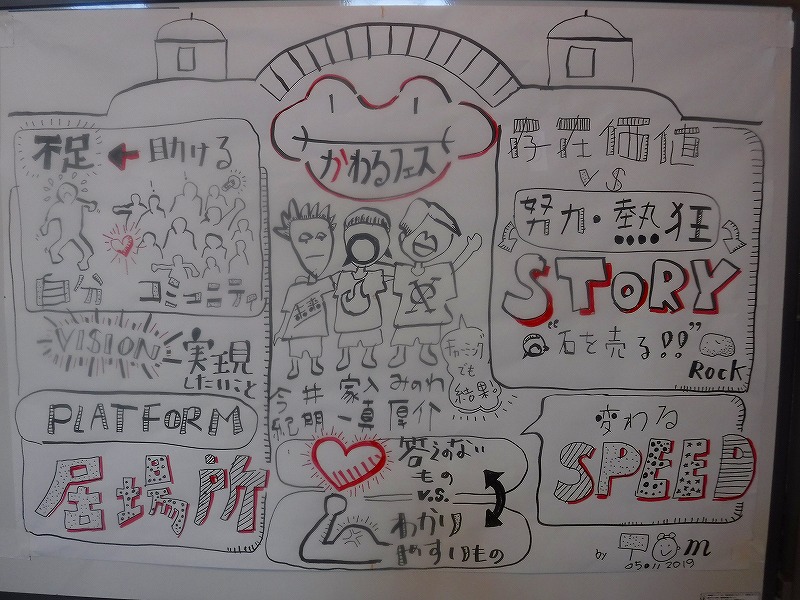 かわるフェス
不足 ← 助ける
自分 コミュニティ
VISION
実現
したいこと
PLATFORM
居場所
今井 家入 みのわ
紀明 一真 厚介
でも
結果。
答えのない
もの
v.s.
わかり
やすいもの
存在価値
VS
努力・熱狂
STORY
“石を売る!!”
Rock
変わる
SPEED
by
m
05.11 2019